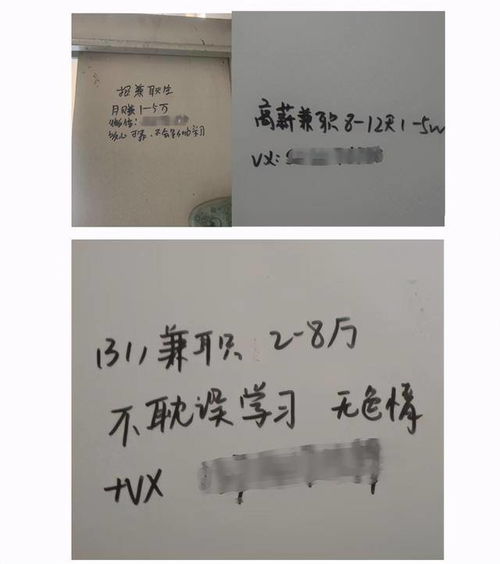 招兼职生
月赚1-5万
微信:
放心可靠,不会影响学习
高薪兼职8-12天1-5w
VX:
131,兼职 2-8万
不耽误学习 无色情
+VX